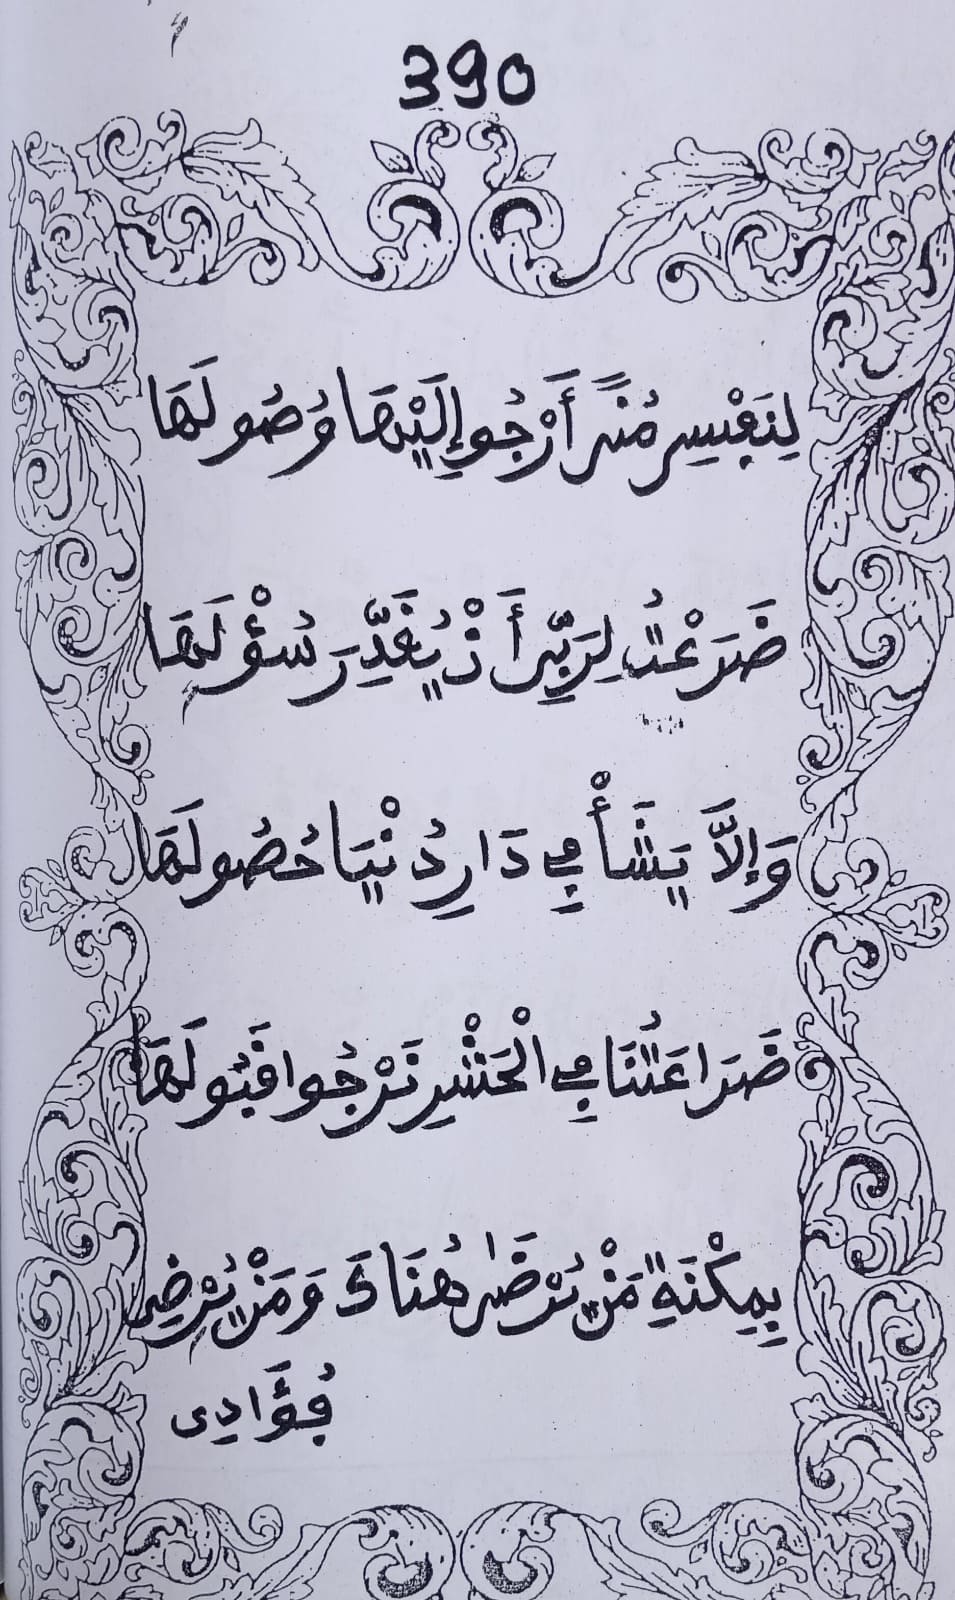 390
لِنَفْسِي مُنًى أَرْجُو إِلَيْهَا وُصُولَهَا
ضَرَعْتُ لِرَبِّي أَنْ يُقَدِّرَ سُؤْلَهَا
وَإِلَّا يَشَأْ فِي دَارِ دُنْيَا حُصُولَهَا
ضَرَاعَتُنَا فِي الْحَشْرِ نَرْجُوا قَبُولَهَا
بِمِكْنَةِ مَنْ يَرْضَىٰ هُنَاكَ وَمَنْ يُرْضِي
فُؤَادِي